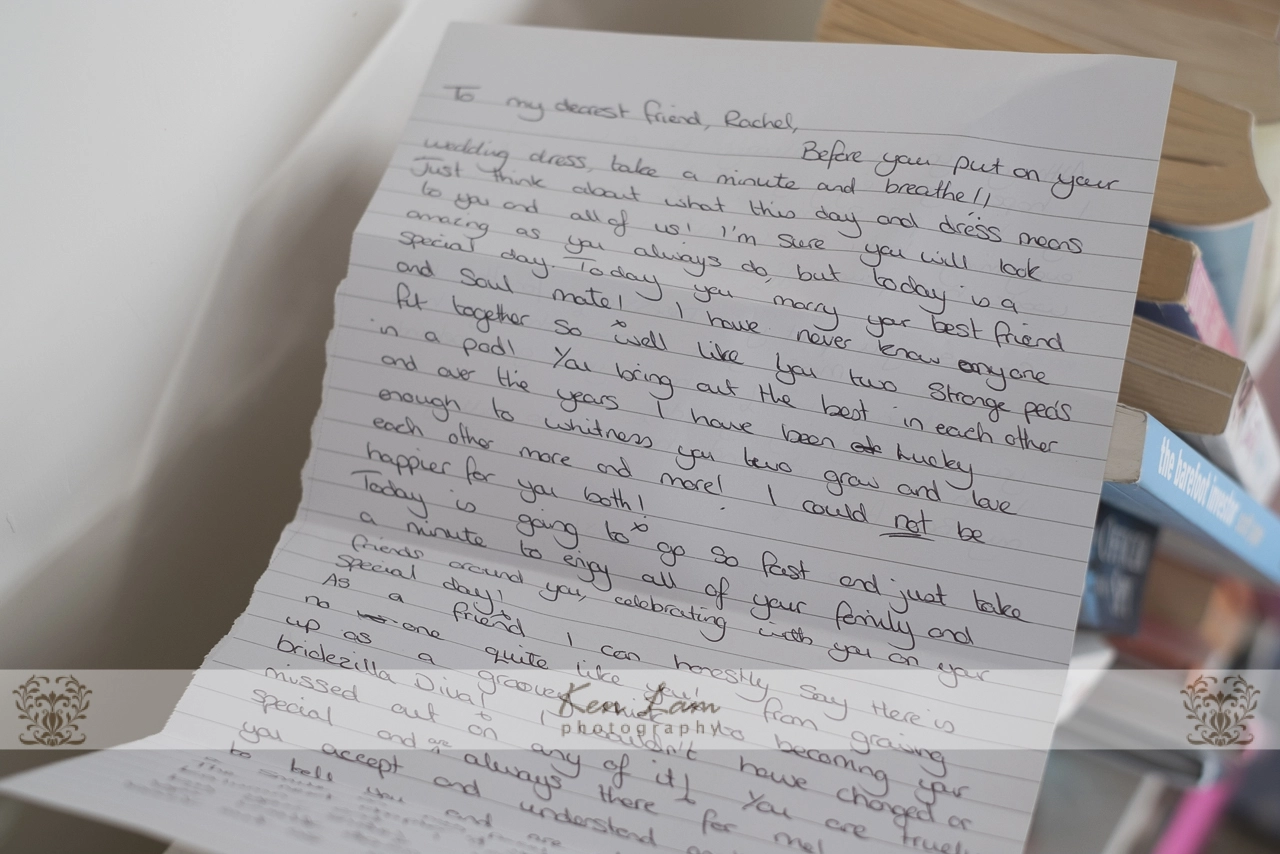 To my dearest friend, Rachel,
Before you put on your
wedding dress, take a minute and breathe!!
Just think about what this day and dress means
to you and all of us! I'm sure you will look
amazing as you always do, but today is a
special day. Today you marry your best friend
and soul mate! I have never know anyone
fit together so well like you two strange peas
in a pod! You bring out the best in each other
and over the years I have been lucky
enough to whitness you two grow and love
each other more and more! I could not be
happier for you both!
Today is going to go so fast and just take
a minute to enjoy all of your family and
friends around you, celebrating with you on your
special day!
As a friend I can honestly say there is
no one quite like you! from growing
up as a to becoming your
bridezilla Diva! I wouldn't have changed or
missed out on any of it! You are truely
special and are always there for me!
you accept and understand
to and are
Ken Lam
photography
the barefoot investor